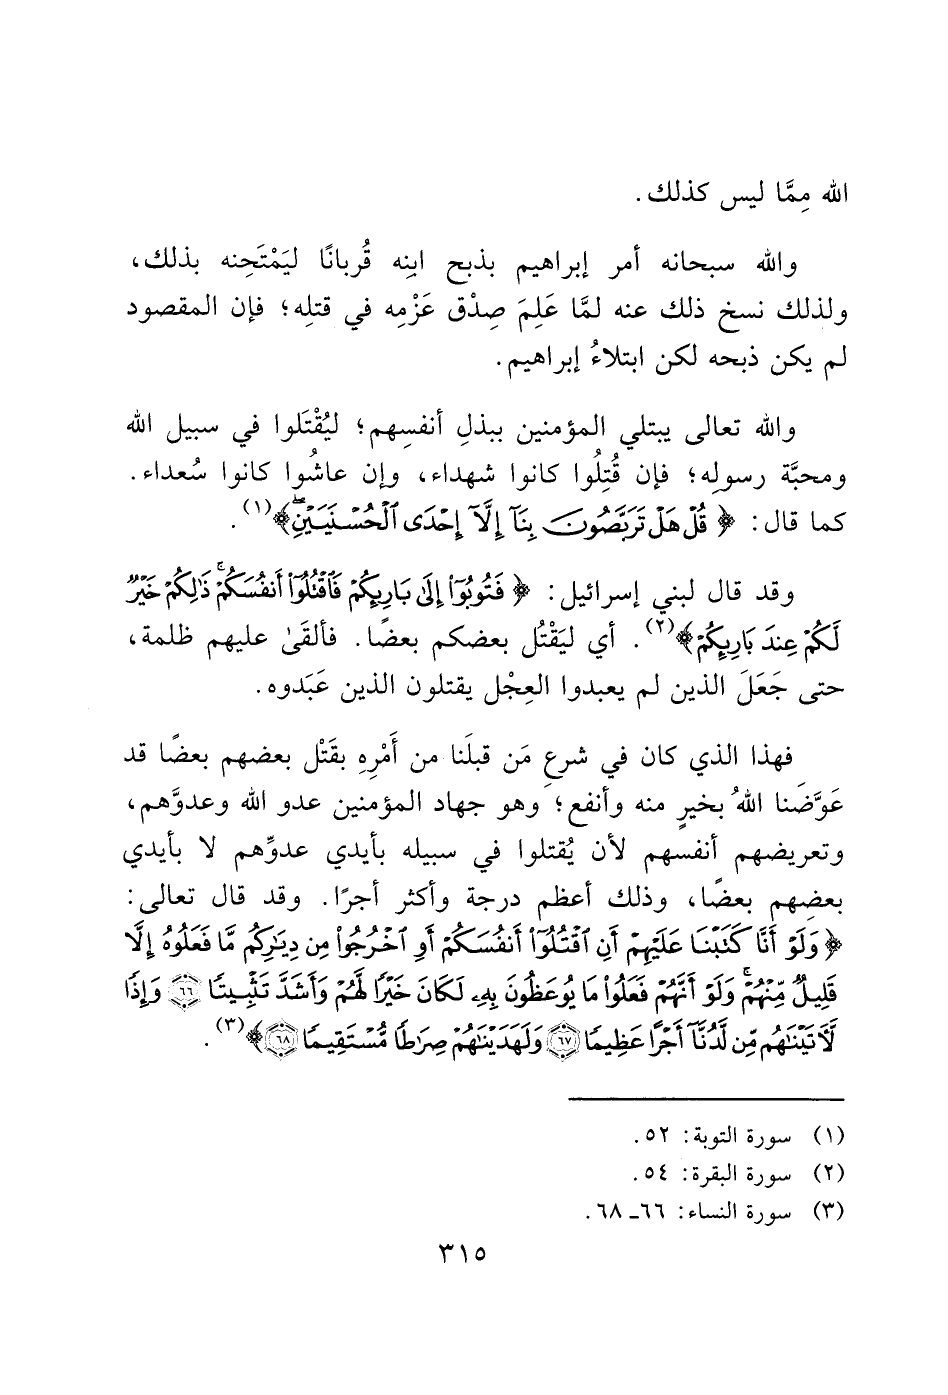 الله مِمَّا ليس كذلك.
والله سبحانه أمر إبراهيم بذبح ابنِه قُربانًا ليَمْتَحِنه بذلك،
ولذلك نسخ ذلك عنه لمَّا عَلِمَ صِدْق عَزْمِه في قتلِه؛ فإن المقصود
لم يكن ذبحه لكن ابتلاءُ إبراهيم.
والله تعالى يبتلي المؤمنين ببذلِ أنفسِهم؛ ليُقْتَلوا في سبيل الله
ومحبَّة رسولِه؛ فإن قُتِلُوا كانوا شهداء، وإن عاشُوا كانوا سُعداء.
كما قال: ﴿ قُلْ هَلْ تَرَبَّصُونَ بِنَآ إِلَّآ إِحْدَى ٱلْحُسْنَيَيْنِۖ﴾(١).
وقد قال لبني إسرائيل: ﴿ فَتُوبُوٓاْ إِلَىٰ بَارِئِكُمْ فَٱقْتُلُوٓاْ أَنفُسَكُمْۚ ذَٰلِكُمْ خَيْرٌ
لَّكُمْ عِندَ بَارِئِكُمْ﴾(٢). أي ليَقْتُل بعضكم بعضًا. فألقَىٰ عليهم ظلمة،
حتى جَعَلَ الذين لم يعبدوا العِجْل يقتلون الذين عَبَدوه.
فهذا الذي كان في شرعِ مَن قبلَنا من أَمْرِهِ بقَتْل بعضهم بعضًا قد
عَوَّضَنا اللهُ بخيرٍ منه وأنفع؛ وهو جهاد المؤمنين عدو الله وعدوَّهم،
وتعريضهم أنفسهم لأن يُقتلوا في سبيله بأيدي عدوِّهم لا بأيدي
بعضِهم بعضًا، وذلك أعظم درجة وأكثر أجرًا. وقد قال تعالى:
﴿ وَلَوْ أَنَّا كَتَبْنَا عَلَيْهِمْ أَنِ ٱقْتُلُوٓاْ أَنفُسَكُمْ أَوِ ٱخْرُجُواْ مِن دِيَٰرِكُم مَّا فَعَلُوهُ إِلَّا
قَلِيلٌ مِّنْهُمْۖ وَلَوْ أَنَّهُمْ فَعَلُواْ مَا يُوعَظُونَ بِهِۦ لَكَانَ خَيْرًا لَّهُمْ وَأَشَدَّ تَثْبِيتًا ٦٦ وَإِذًا
لَّأٓتَيْنَٰهُم مِّن لَّدُنَّآ أَجْرًا عَظِيمًا ٦٧ وَلَهَدَيْنَٰهُمْ صِرَٰطًا مُّسْتَقِيمًا ٦٨﴾(٣).
(١) سورة التوبة: ٥٢.
(٢) سورة البقرة: ٥٤.
(٣) سورة النساء: ٦٦ـ ٦٨.
٣١٥